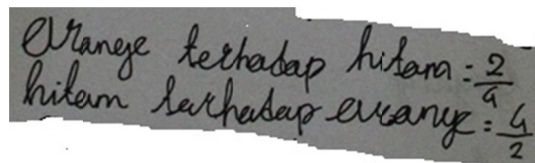 orange terhadap hitam = 2/4
hitam terhadap orange = 4/2